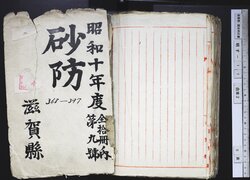 昭和十年度
全拾冊ノ内
第九號
砂防
368-397
滋賀縣